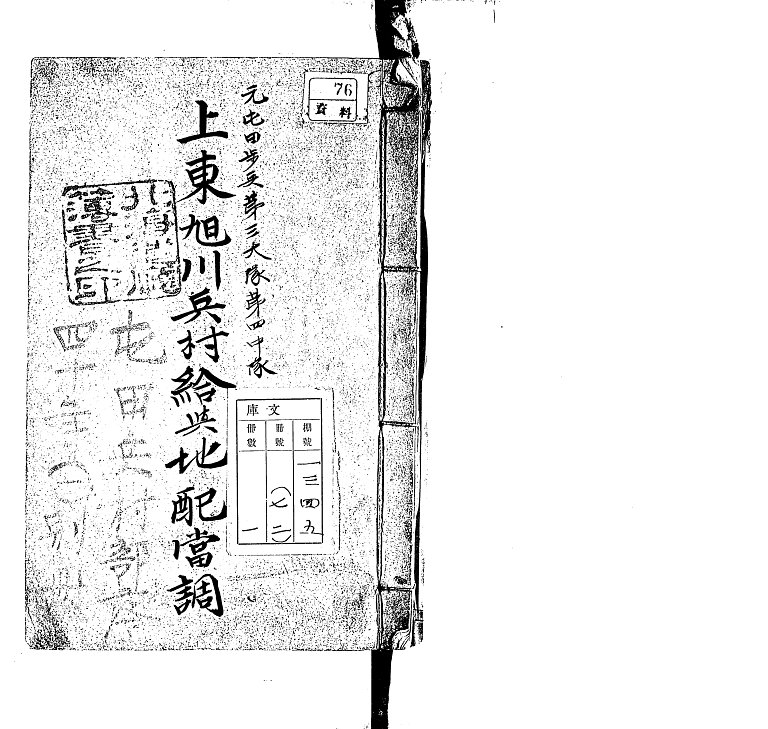 76
資料
元屯田歩兵第三大隊第四中隊
上東旭川兵村給與地配當調
文庫
棚號
一三四五
冊號
(七二)
冊數
一
屯田兵村部
四十年